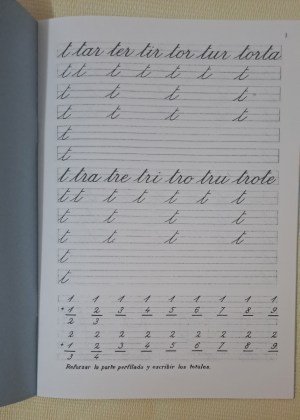 1
t tar ter tir tor tur torta
t t t t t t t
t t t t
t t t t
t
t
t tra tre tri tro tru trote
t t t t t t t
t t t t
t t t t
t
t
1 1 1 1 1 1 1 1 1
+ 1 2 3 4 5 6 7 8 9
2 3
2 2 2 2 2 2 2 2 2
+ 1 2 3 4 5 6 7 8 9
3 4
Reforzar la parte perfilada y escribir los totales.